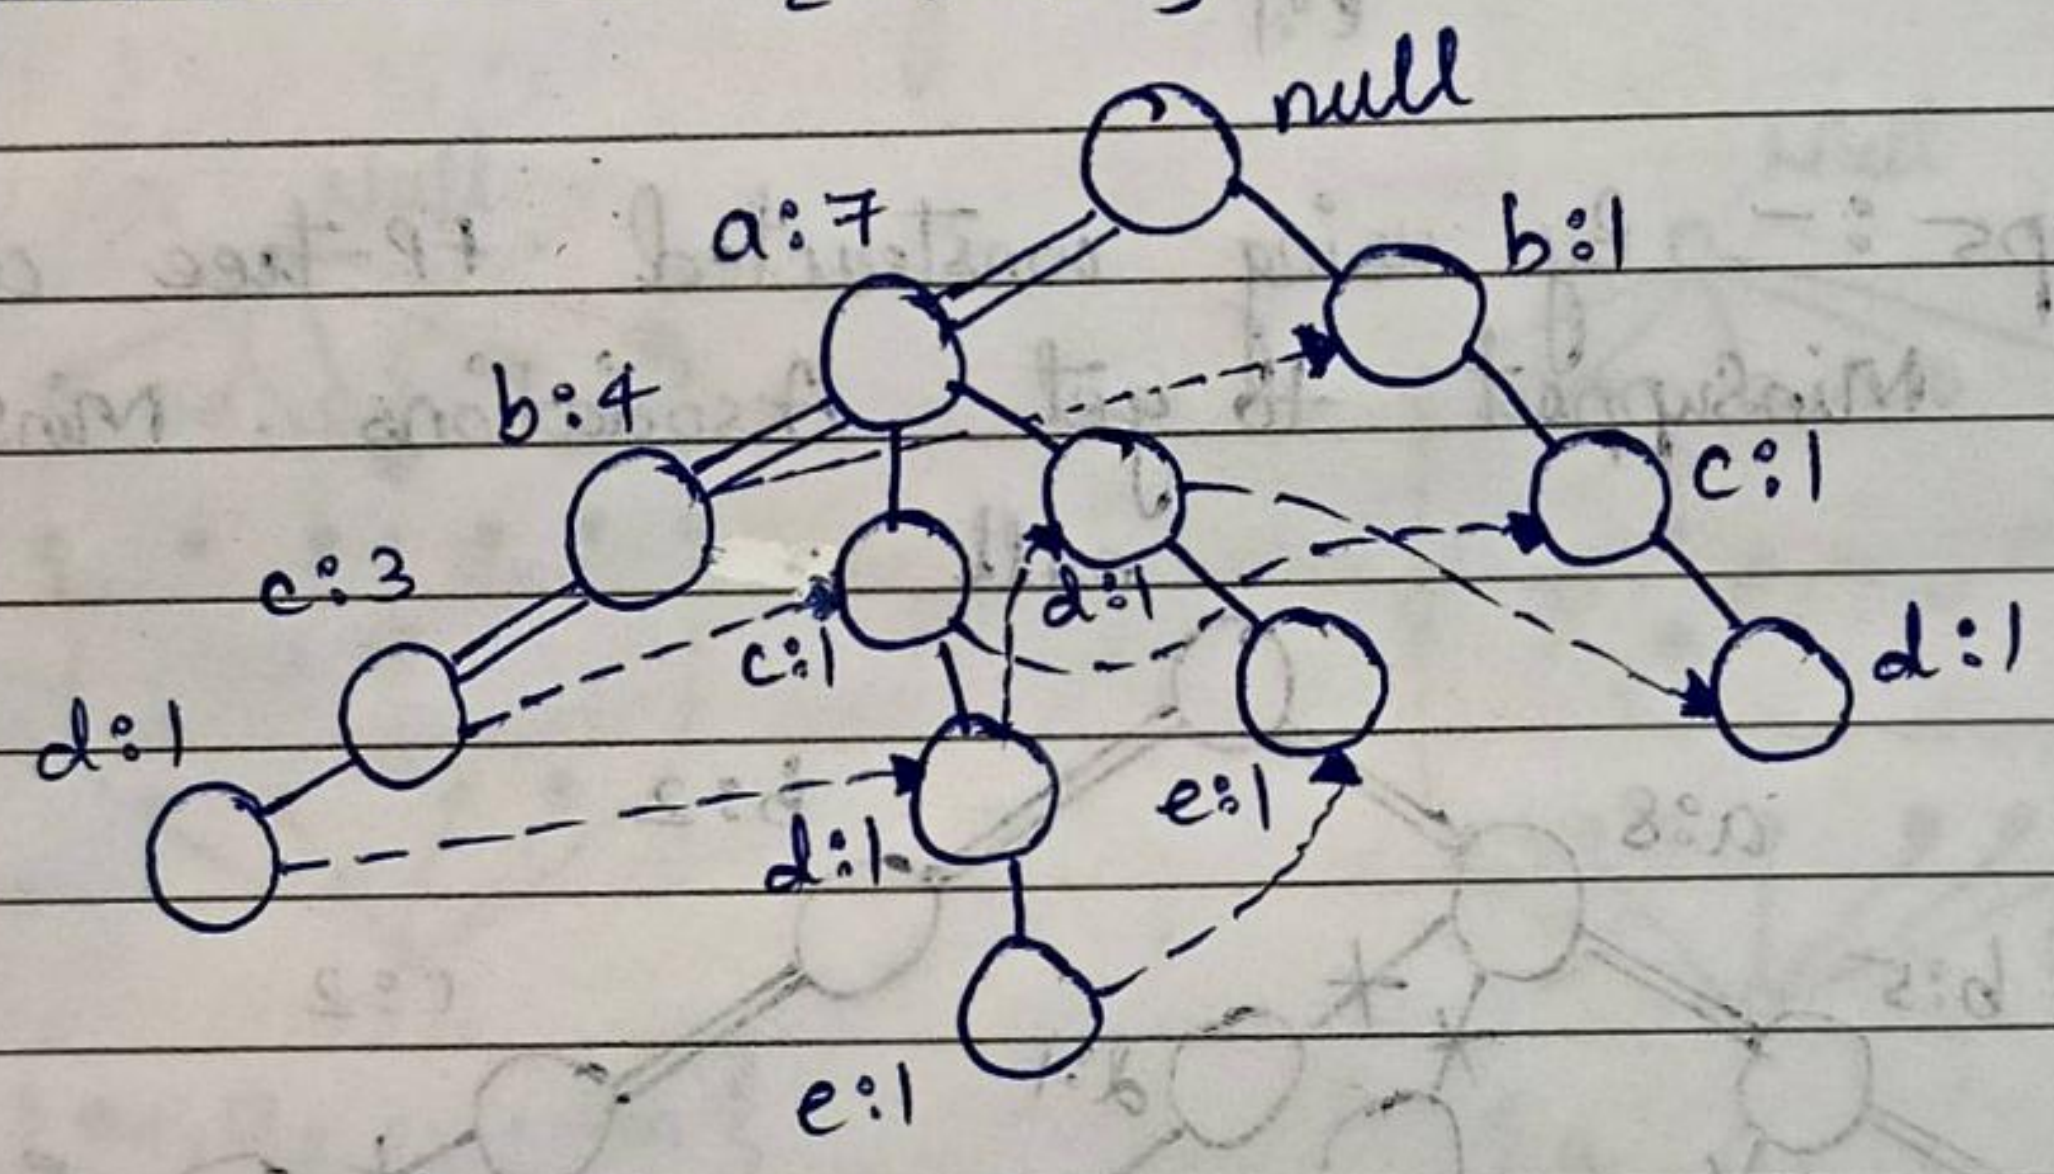 null
a:7
b:1
b:4
c:1
c:3
d:1
c:1
d:1
d:1
e:1
d:1
e:1